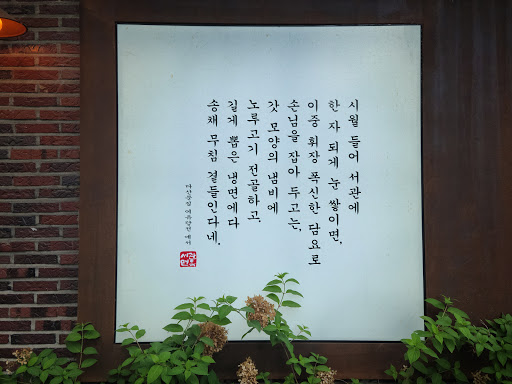 시월 들어 서관에
한 자 되게 눈 쌓이면,
이중 휘장 폭신한 담요로
손님을 잡아 두고는,
갓 모양의 냄비에
노루고기 전골하고,
길게 뽑은 냉면에다
송채 무침 곁들인다네.
다산풍일 여유당전 에서